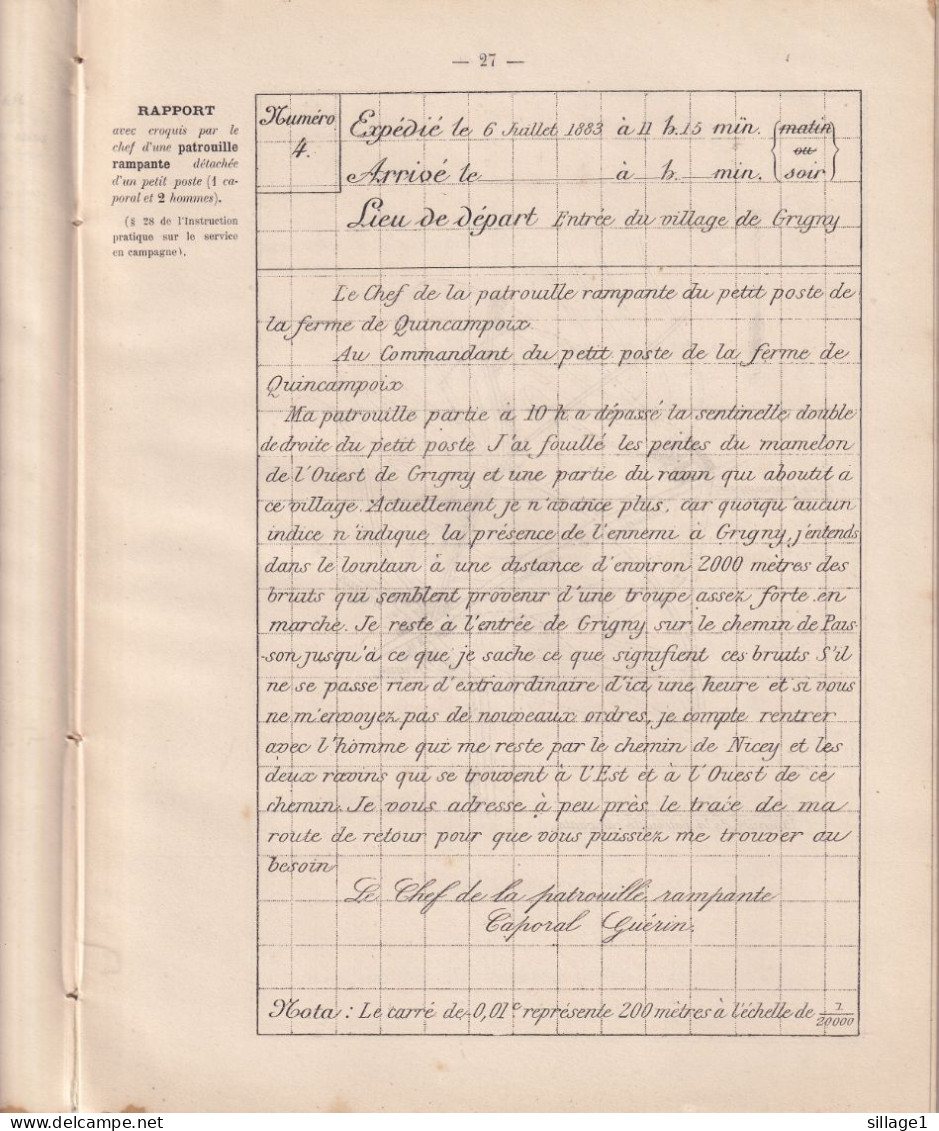 — 27 —
RAPPORT
avec croquis par le
chef d'une patrouille
rampante détachée
d'un petit poste (1 ca-
poral et 2 hommes).
(§ 28 de l'Instruction
pratique sur le service
en campagne).
Numéro
4.
Expédié le 6 Juillet 1883 à 11 h. 15 min. (matin
ou
Arrivé le à h. min. soir)
Lieu de départ Entrée du village de Grigny
Le Chef de la patrouille rampante du petit poste de
la ferme de Quincampoix.
Au Commandant du petit poste de la ferme de
Quincampoix
Ma patrouille partie à 10 h a dépassé la sentinelle double
de droite du petit poste J'ai fouillé les pentes du mamelon
de l'Ouest de Grigny et une partie du ravin qui aboutit a
ce village. Actuellement je n'avance plus, car quoiqu'aucun
indice n'indique la présence de l'ennemi à Grigny, j'entends
dans le lointain à une distance d'environ 2000 mètres des
bruits qui semblent provenir d'une troupe assez forte en
marche. Je reste à l'entrée de Grigny sur le chemin de Pais-
-son jusqu'à ce que je sache ce que signifient ces bruits S'il
ne se passe rien d'extraordinaire d'ici une heure et si vous
ne m'envoyez pas de nouveaux ordres, je compte rentrer
avec l'homme qui me reste par le chemin de Nicey et les
deux ravins qui se trouvent à l'Est et à l'Ouest de ce
chemin. Je vous adresse à peu près le tracé de ma
route de retour pour que vous puissiez me trouver au
besoin
Le Chef de la patrouille rampante
Caporal Guérin.
Nota : Le carré de 0,01c représente 200 mètres à l'échelle de 1/20000
sillage1